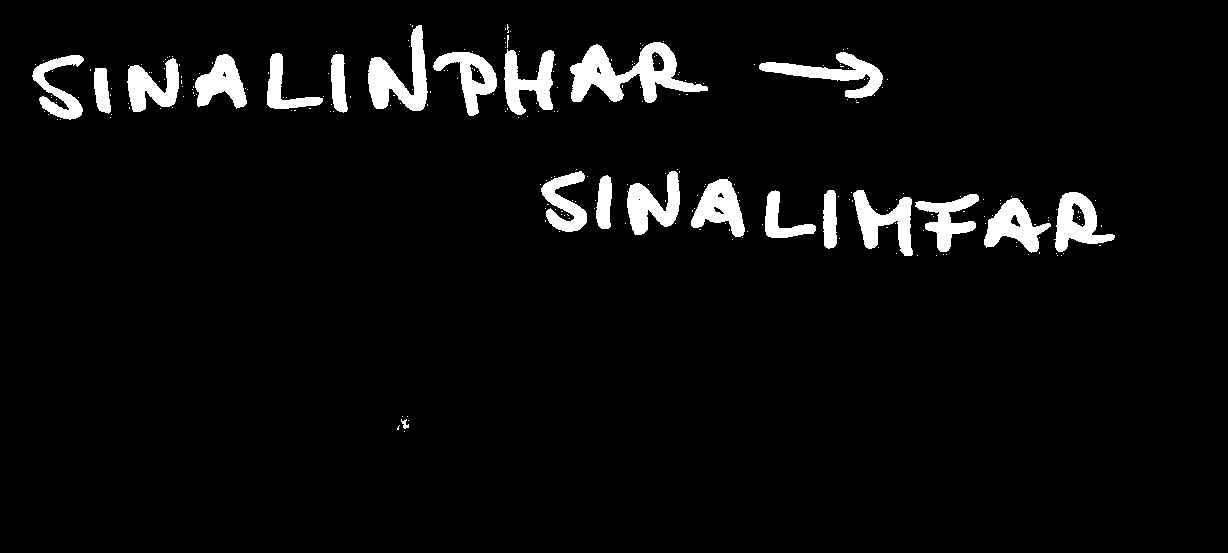 SINALINPHAR →
SINALIMFAR